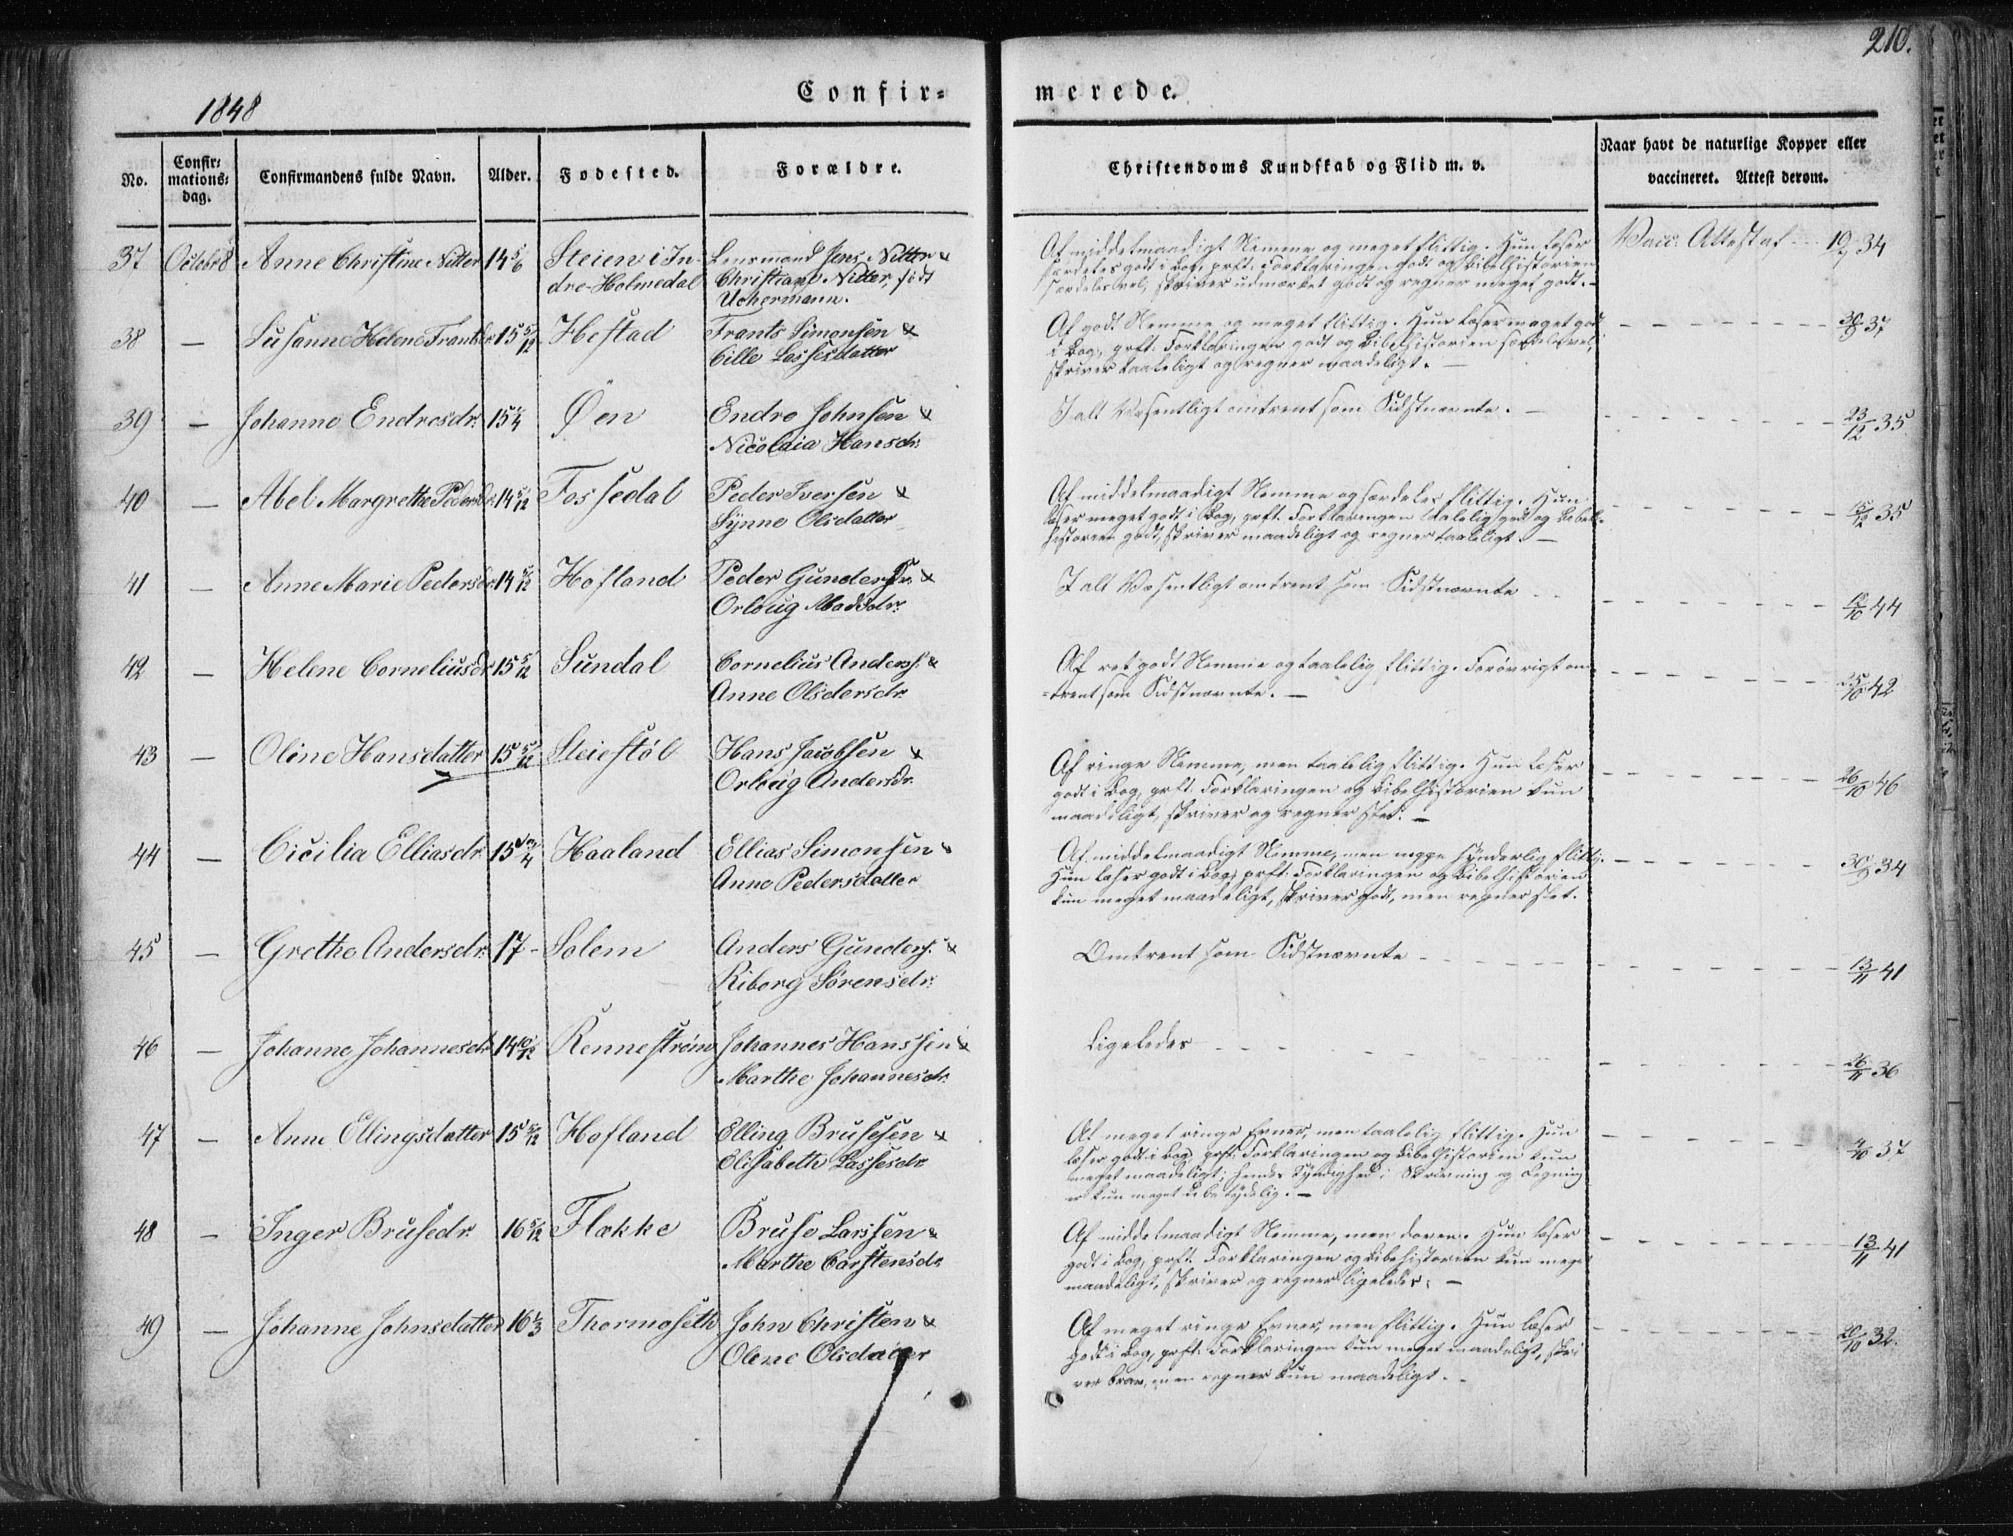 210.
1848
Confir=
merede.
No.
Confir=
mations=
dag.
Confirmandens fulde Navn.
Alder.
Fødested.
Forældre.
Christendoms Kundskab og Flid m. v.
Naar havt de naturlige Kopper eller
vaccineret. Attest derom.
37 Octobr 8 Anne Christine Nitter 14 5/6 Steien i In-
dre-Holmedal
Lensmand Jens Nitter &
Christiane Nitter, født
Uchermann.
Af middelmaadigt Nemme og meget flittig. Hun læser
særdeles godt i Bog, prft: Forklaringen godt og Bibelhistorien
særdeles vel, skriver udmærket godt og regner meget godt. -
Vacc. Attest af 19/9 34
38 — Susanne Helene Frantsdr. 15 5/12 Hestad
Frants Simonsen &
Cille Lassesdatter
Af godt Nemme og meget flittig. Hun læser meget godt
i Bog, prft: Forklaringen godt og Bibelhistorien særdeles vel,
skriver taaleligt og regner maadeligt. —
30/9 37
39 — Johanne Endresdr. 15 1/4 Øen
Endre Johnsen &
Nicolaia Hansdr.
I alt Væsentligt omtrent som Sidstnævnte. —
23/12 35
40 — Abel Margrethe Pedersdr. 14 5/12 Fossedal
Peder Iversen &
Synne Olsdatter
Af middelmaadigt Nemme og særdeles flittig. Hun
læser meget godt i Bog, prft. Forklaringen taalelig godt og Bibel-
historien godt, skriver maadeligt og regner taaleligt. —
15/12 35
41 — Anne Marie Pedersdr. 14 5/12 Hofland
Peder Gunders. &
Orloug Madsdr.
I alt Væsentligt omtrent som Sidstnævnte
12/10 44
42 — Helene Corneliusdr. 15 5/12 Sundal
Cornelius Anders. &
Anne Olsdersdr.
Af ret godt Nemme og taalelig flittig. Forøvrigt om-
=trent som Sidstnævnte. —
25/10 42
43 — Oline Hansdatter 15 5/12 Steiestøl
Hans Jacobsen &
Orloug Andersdr.
Af ringe Nemme, men taalelig flittig. Hun læser
godt i Bog, prft. Forklaringen og Bibelhistorien kun
maadeligt, skriver og regner slet. —
26/10 46
44 — Cicilia Elliasdr. 15 3/4 Haaland
Ellias Simonsen &
Anne Pedersdatter
Af middelmaadigt Nemme, men neppe synderlig flittig.
Hun læser godt i Bog, prft: Forklaringen og Bibelhistorien
kun meget maadeligt, skriver godt, men regner slet.
30/9 34
45 — Grethe Andersdr. 17 - Solem
Anders Gunders. &
Riborg Sørensdr.
Omtrent som Sidstnævnte
13/11 41
46 — Johanne Johannesdr. 14 10/12 Rennestrøm
Johannes Hanssen &
Marthe Johannesdr.
Ligeledes
26/11 36
47 — Anne Ellingsdatter 15 5/12 Hofland
Elling Brusesen &
Elisabeth Lassesdr.
Af meget ringe Evner, men taalelig flittig. Hun
læser godt i Bog, prft: Forklaringen og Bibelhistorien kun
meget maadeligt; hendes Færdighed i Skrivning og Regning
er kun meget ubetydelig. —
4/10 37
48 — Inger Brusedr. 16 5/12 Flække
Bruse Larssen &
Marthe Carstensdr.
Af middelmaadigt Nemme, men doven. Hun læser
godt i Bog, prft. Forklaringen og Bibelhistorien kun meget
maadeligt, skriver og regner ligeledes. —
13/11 41
49 — Johanne Johnsdatter 16 1/3 Thormoseth
John Christens. &
Olene Olsdatter
Af meget ringe Evner, men flittig. Hun læser
godt i Bog, prft: Forklaringen kun meget maadeligt, skri-
ver brav, men regner kun maadeligt. -
20/10 32.